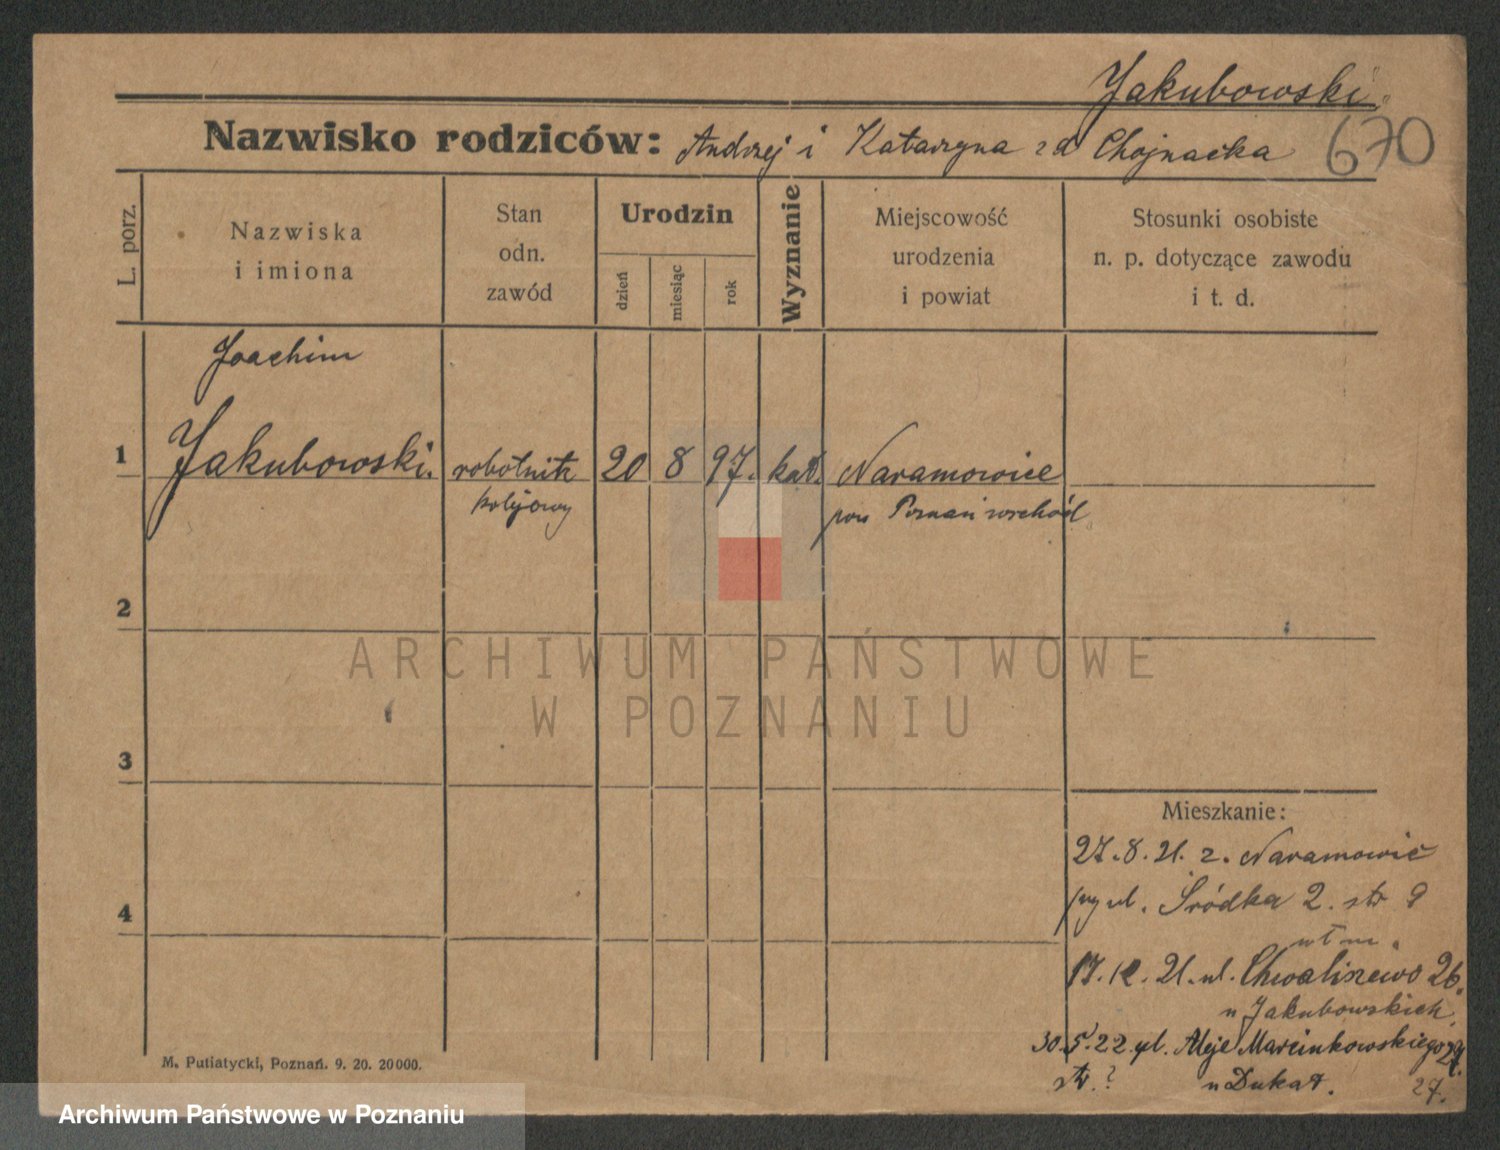 Jakubowski.
670
Nazwisko rodziców: Andrzej i Katarzyna zd Chojnacka
L. porz.
Nazwiska
i imiona
Stan
odn.
zawód
Urodzin
dzień
miesiąc
rok
Wyznanie
Miejscowość
urodzenia
i powiat
Stosunki osobiste
n. p. dotyczące zawodu
i t. d.
Joachim
1 Jakubowski. robotnik 20 8 97. kat. Naramowice
kolejowy pow Poznań wschód
2
3
4
Mieszkanie:
27.8.21. z. Naramowic
ul. Śródka 2. str 9
17.12.21. ul. Chwaliszewo 26.
u Jakubowskich.
30.5.22 ul. Aleje Marcinkowskiego 27.
str. ? u Dukat. 27.
M. Putiatycki, Poznań. 9. 20. 20000.
ARCHIWUM PAŃSTWOWE
W POZNANIU
Archiwum Państwowe w Poznaniu